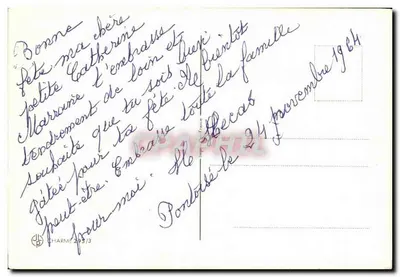 Bonne
fête ma chère
petite Catherine
Marraine t'embrasse
tendrement de loin et
souhaite que tu sois bien
gâtée pour ta fête. A bientôt
peut-être. Embrasse toute la famille
pour moi.
Pontoise le 24 novembre 1964